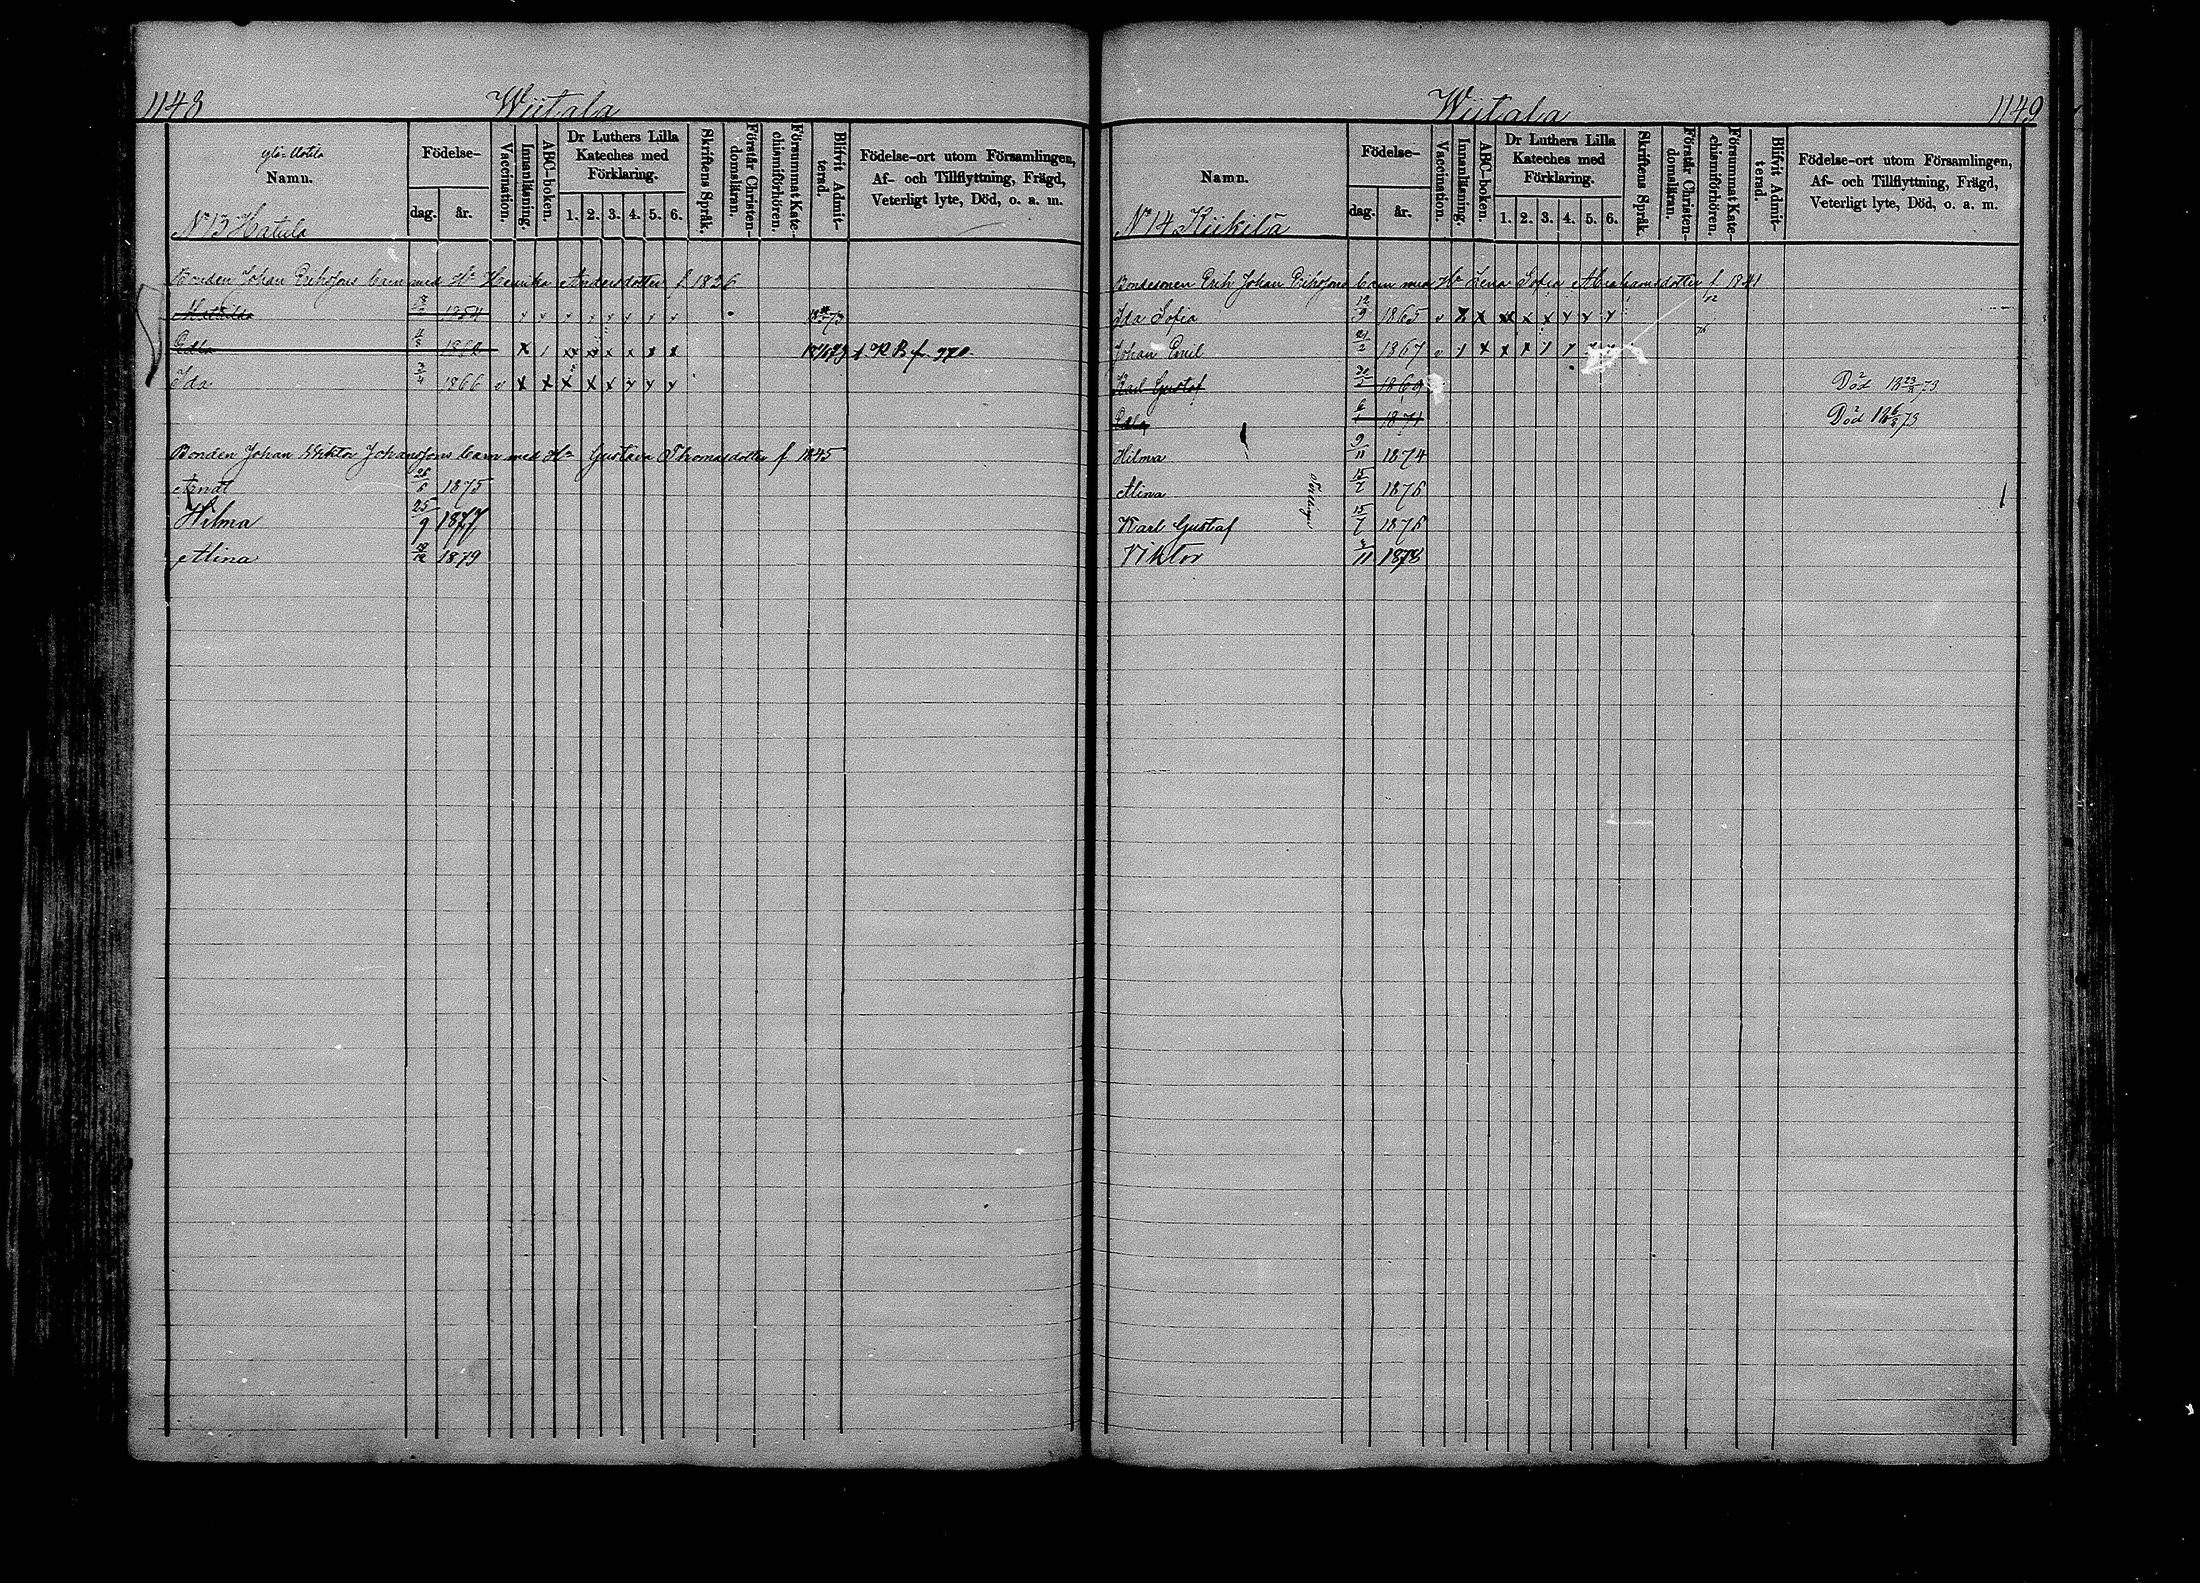 1148 Wiitala
Ylä-Hatula
Namn.
Födelse-
dag. år.
Vaccination.
Innanläsning.
ABC-boken.
Dr Luthers Lilla Kateches med Förklaring.
1. 2. 3. 4. 5. 6.
Skriftens Språk.
Förstår Christendomsläran.
Försummat Katechismiförhören.
Blifvit Admitterad.
Födelse-ort utom Församlingen, Af- och Tillflyttning, Frägd, Veterligt lyte, Död, o. a. m.
No 13 Hatula
Bonden Johan Erikssons barn med Hu Henrika Andersdotter f. 1826
Mathilda 1854
Edla K B f. 970.
Ida 3/4 1866 v x x x x x x x x
Bonden Johan Viktor Johanssons barn med Hu Gustava Thomasdotter f 1845
1875
Hilma 25/9 1877
Alina 1879
Wiitala 1149
Namn.
Födelse-
dag. år.
Vaccination.
Innanläsning.
ABC-boken.
Dr Luthers Lilla Kateches med Förklaring.
1. 2. 3. 4. 5. 6.
Skriftens Språk.
Förstår Christendomsläran.
Försummat Katechismiförhören.
Blifvit Admitterad.
Födelse-ort utom Församlingen, Af- och Tillflyttning, Frägd, Veterligt lyte, Död, o. a. m.
No 14 Kiikilä
Bondesonen Erik Johan Erikssons barn med Hu Lena Sofia Abrahamsdotter f 1841
Ida Sofia 12/9 1865 v x x x x x x x x
Johan Emil 21/2 1867
Karl Gustaf 1869 Död 18 23/2 73
Edla 1871 Död 18 6/3 73
Hilma 9/11 1874
Alina 15/7 1876
Tvillingar
Karl Gustaf 15/7 1876
Viktor 1878